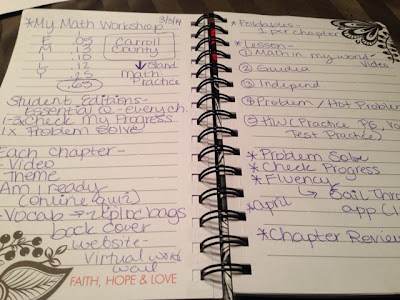 *My Math Workshop
E .05
Carroll
M .13
County
I .10
L .12
Island
Y .25
math
.65
Practice
Student Editions-
Essential ?-every ch.
1-2xCheck My Progress
1x Problem Solve
Each Chapter-
-Video
Theme
Am I ready
(online quiz)
-Vocab → ziploc bags
back cover
website-
Virtual word
wall
FAITH, HOPE & LOVE
*Foldables-
1 per chapter
*Lesson-
① Math in my world
Video
② Guided
③ Independ
④ Problem / Hot Problem
⑤ HW (Practice PG, Vo
Test Practice)
*Problem Solve
*Check Progress
*Fluency
→ Sail Thro
*April
app
*Chapter Review